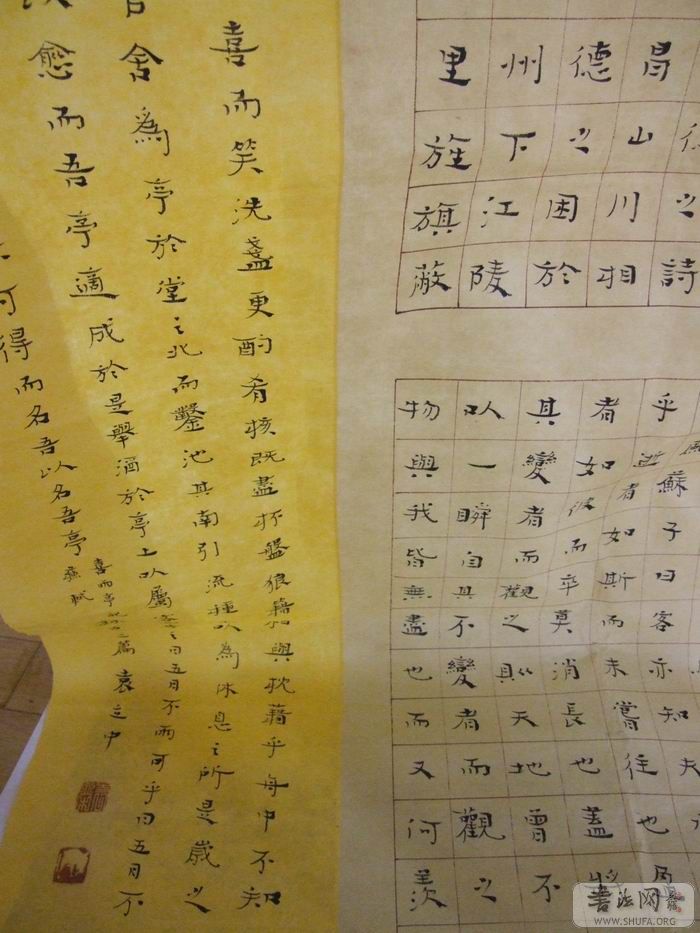 之詩
昌山川相
德之困於
州下江陵
里旌旗蔽
乎
蘇子曰客亦知夫
逝者如斯而未嘗往也
者如彼而卒莫消長也蓋將
其變者而觀之則天地曾不
以一瞬自其不變者而觀之
物與我皆無盡也而又何羨
喜而笑洗盞更酌肴核既盡杯盤狼藉相與枕藉乎舟中不知
舍為亭於堂之北而鑿池其南引流種以為休息之所是歲之
愈而吾亭適成於是舉酒於亭上以屬客曰五月不雨可乎曰五月不
可得而名吾以名吾亭 蘇軾
喜雨亭
書法网
WWW.SHUFA.ORG